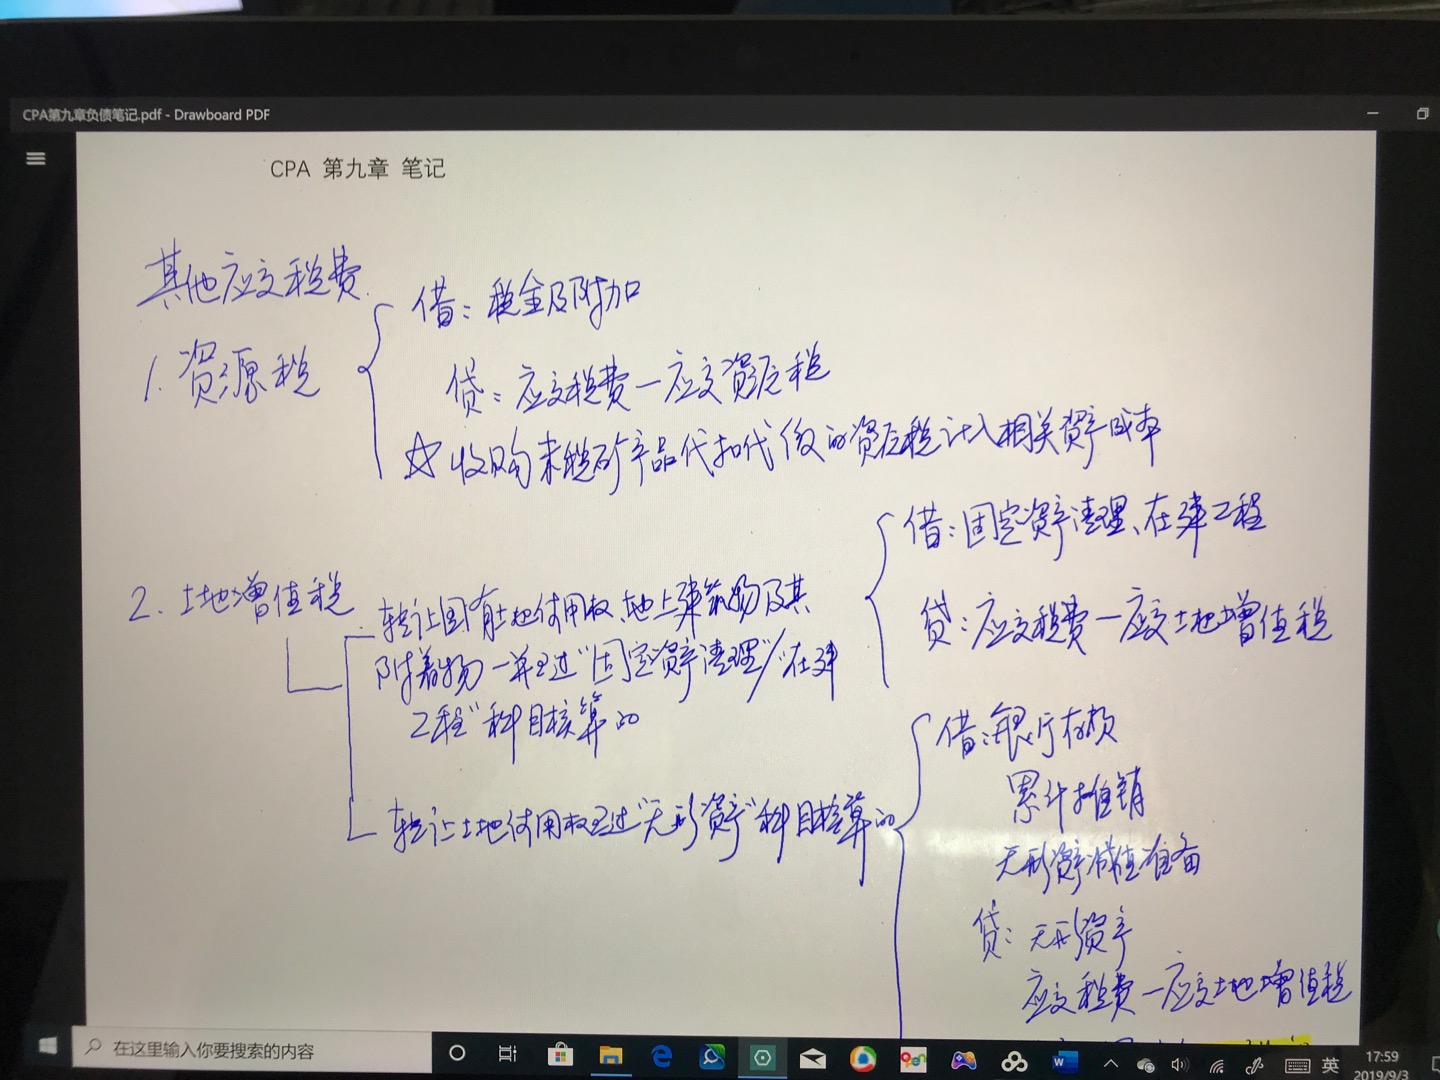 CPA第九章负债笔记.pdf - Drawboard PDF
CPA 第九章 笔记
其他应交税费
1. 资源税
借：税金及附加
贷：应交税费一应交资源税
☆收购未税矿产品代扣代缴的资源税计入相关资产成本
2. 土地增值税
转让国有土地使用权、地上建筑物及其
附着物一并通过"固定资产清理"/"在建
工程"科目核算的
借：固定资产清理、在建工程
贷：应交税费一应交土地增值税
转让土地使用权通过"无形资产"科目核算的
借：银行存款
累计摊销
无形资产减值准备
贷：无形资产
应交税费一应交土地增值税
在这里输入你要搜索的内容
英
17:59
2019/9/3